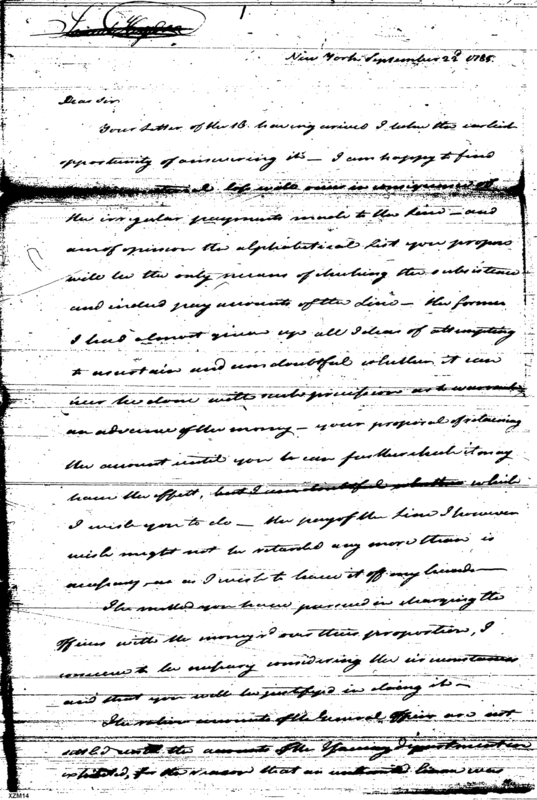 New York September 22d 1785.
Dear Sir
Your Letter of the 18. having arrived I take the earliest
opportunity of answering it — I am happy to find
loss will arise in consequence of
the irregular payments made to the Line — and
am of opinion the alphabetical list you propose
will be the only means of checking the subsistence
and indeed pay accounts of the Line — the former
I had almost given up all Ideas of attempting
to ascertain and am doubtful whether it can
ever be done with such precission as to warrant
an advance of the money — your proposal of retaining
the account until you can further check it may
have the effect, but I am doubtful whether which
I wish you to do — the pay of the Line I however
wish might not be retarded any more than is
necessary as I wish to have it off my hands —
The method you have pursued in charging the
officers with the money over their proportion, I
conceive to be necessary considering the circumstances
and that you will be justifyed in doing it —
The accounts of the General officers are not
settled until the accounts of the department are
exhibited, for the reason that an was
XZM14